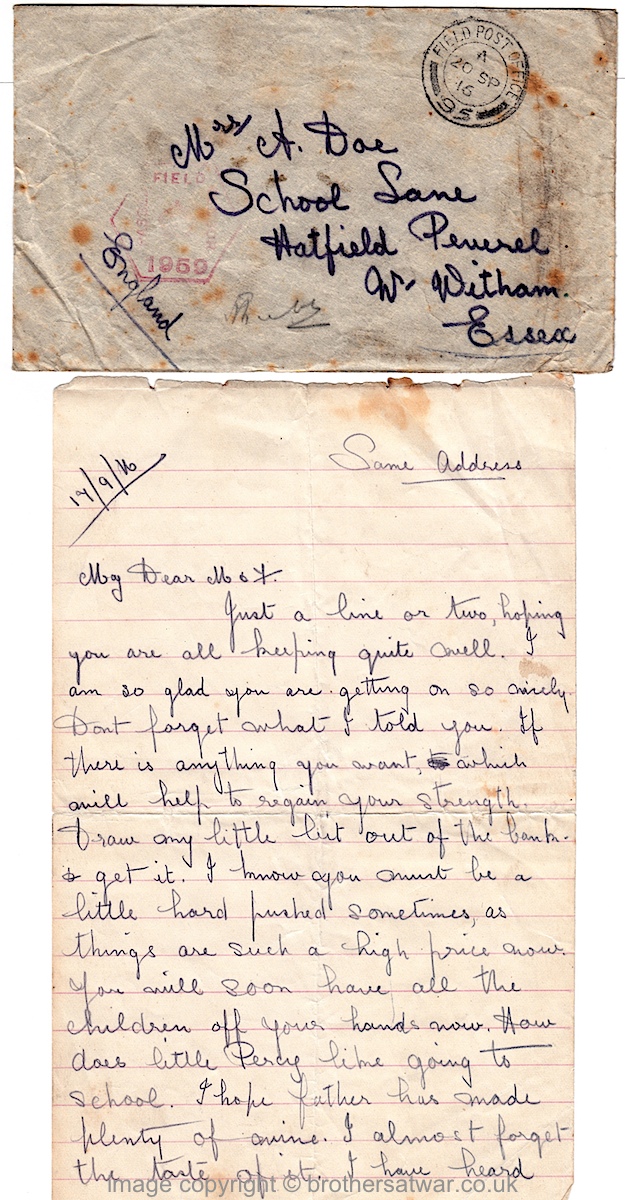 FIELD POST OFFICE
A
20 SP
16
Mrs A. Doe
School Lane
Hatfield Peverel
Nr Witham.
Essex
England
FIELD
1959
Same Address
17/9/16
My Dear M & F.
Just a line or two, hoping
you are all keeping quite well. I
am so glad you are getting on so nicely.
Dont forget what I told you. If
there is anything you want, which
will help to regain your strength.
Draw my little bit out of the bank.
& get it. I know you must be a
little hard pushed sometimes, as
things are such a high price now.
You will soon have all the
children off your hands now. How
does little Percy like going to
school. I hope father has made
plenty of wine. I almost forget
the taste of it. I have heard
Image copyright © brothersatwar.co.uk